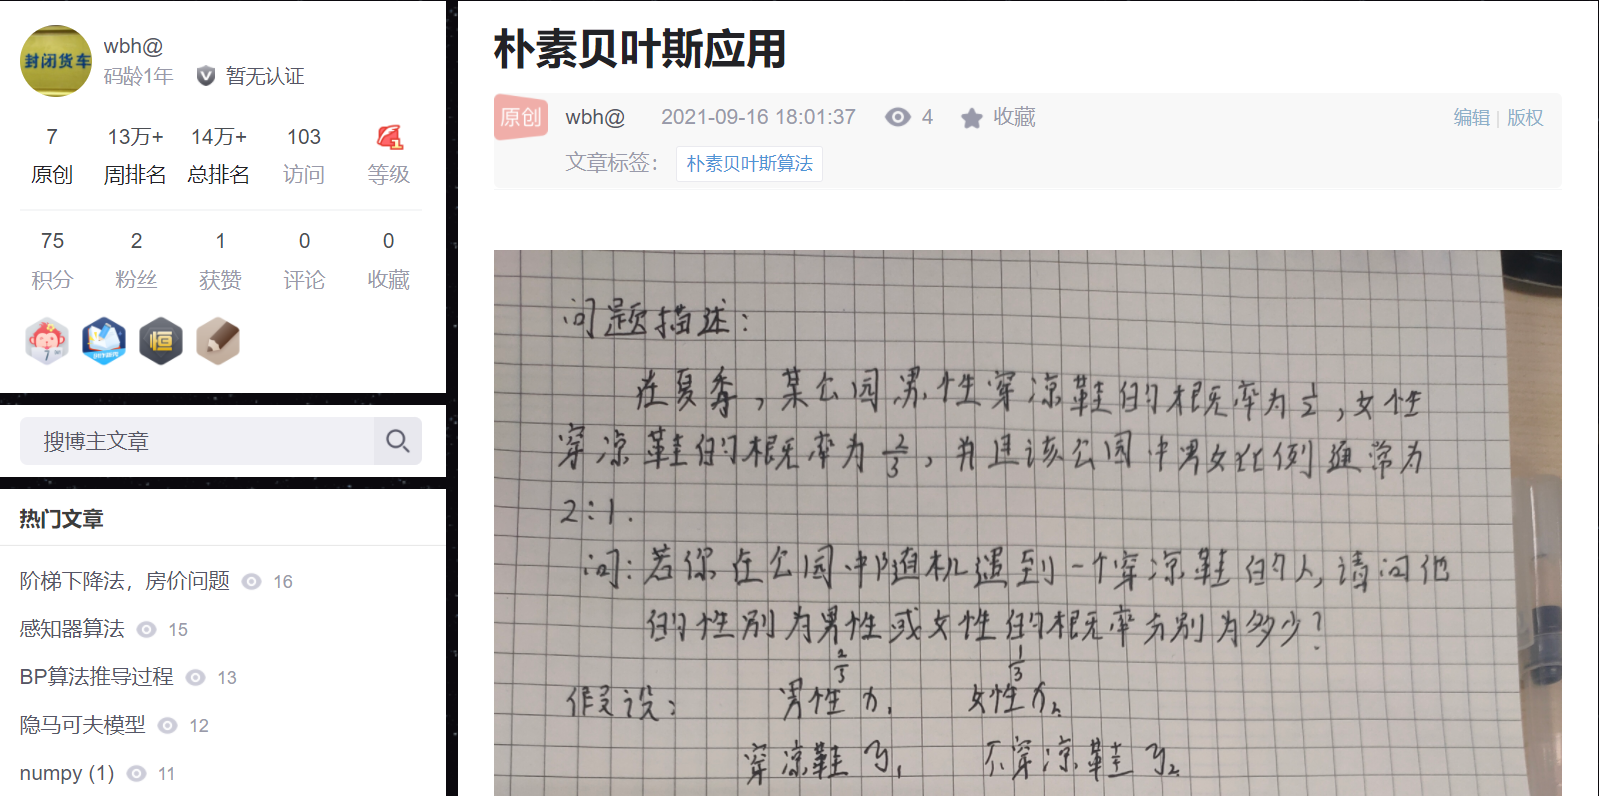 封闭货车
wbh@
码龄1年 暂无认证
7 13万+ 14万+ 103 1
原创 周排名 总排名 访问 等级
75 2 1 0 0
积分 粉丝 获赞 评论 收藏
7 恒
搜博主文章
热门文章
阶梯下降法，房价问题 16
感知器算法 15
BP算法推导过程 13
隐马可夫模型 12
numpy (1) 11
朴素贝叶斯应用
原创 wbh@ 2021-09-16 18:01:37 4 收藏 编辑 | 版权
文章标签： 朴素贝叶斯算法
问题描述：
在夏季，某公园男性穿凉鞋的概率为1/2，女性
穿凉鞋的概率为2/3，并且该公园中男女比例通常为
2:1.
问：若你在公园中随机遇到一个穿凉鞋的人，请问他
的性别为男性或女性的概率分别为多少？
2/3 1/3
假设： 男性x₁ 女性x₂
穿凉鞋 y₁ 不穿凉鞋 y₂